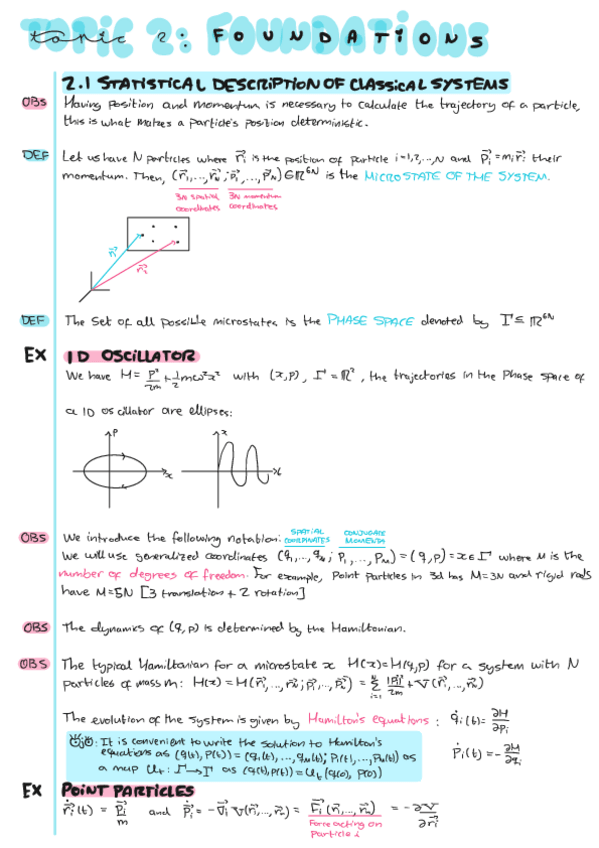 topic 2: FOUNDATIONS
2.1 STATISTICAL DESCRIPTION OF CLASSICAL SYSTEMS
OBS Having position and momentum is necessary to calculate the trajectory of a particle,
this is what makes a particle's position deterministic.
DEF Let us have N particles where r⃗ᵢ is the position of particle i=1,2,...,N and p⃗ᵢ=mᵢr⃗̇ᵢ their
momentum. Then, (r⃗₁,...,r⃗ₙ; p⃗₁,...,p⃗ₙ) ∈ ℝ⁶ᴺ is the MICROSTATE OF THE SYSTEM.
3N spatial 3N momentum
coordinates coordinates
DEF The set of all possible microstates is the PHASE SPACE denoted by Γ ⊆ ℝ⁶ᴺ
Ex 1D OSCILLATOR
We have H = p²/2m + 1/2 mω²x² with (x,p), Γ = ℝ², the trajectories in the phase space of
a 1D oscillator are ellipses:
p x
x t
OBS We introduce the following notation: SPATIAL COORDINATES CONJUGATE MOMENTA
We will use generalized coordinates (q₁,...,q_M; p₁,...,p_M) = (q,p) = x ∈ Γ where M is the
number of degrees of freedom. For example, point particles in 3d has M=3N and rigid rods
have M=5N [3 translation + 2 rotation]
OBS The dynamics of (q,p) is determined by the Hamiltonian.
OBS The typical Hamiltonian for a microstate x H(x)=H(q,p) for a system with N
particles of mass m: H(x) = H(r⃗₁,...,r⃗ₙ; p⃗₁,...,p⃗ₙ) = Σᵢ₌₁ᴺ |p⃗ᵢ|²/2m + V(r⃗₁,...,r⃗ₙ)
The evolution of the system is given by Hamilton's equations: q̇ᵢ(t) = ∂H/∂pᵢ
ṗᵢ(t) = -∂H/∂qᵢ
: It is convenient to write the solution to Hamilton's
equations as (q(t),p(t)) = (q₁(t),...,q_M(t); p₁(t),...,p_M(t)) as
a map Uₜ: Γ → Γ as (q(t),p(t)) = Uₜ(q(0), p(0))
Ex POINT PARTICLES
r⃗̇ᵢ(t) = p⃗ᵢ/m and p⃗̇ᵢ = -∇⃗ᵢ V(r⃗₁,...,r⃗ₙ) = F⃗ᵢ(r⃗₁,...,r⃗ₙ) = -∂V/∂r⃗ᵢ
Force acting on
particle i